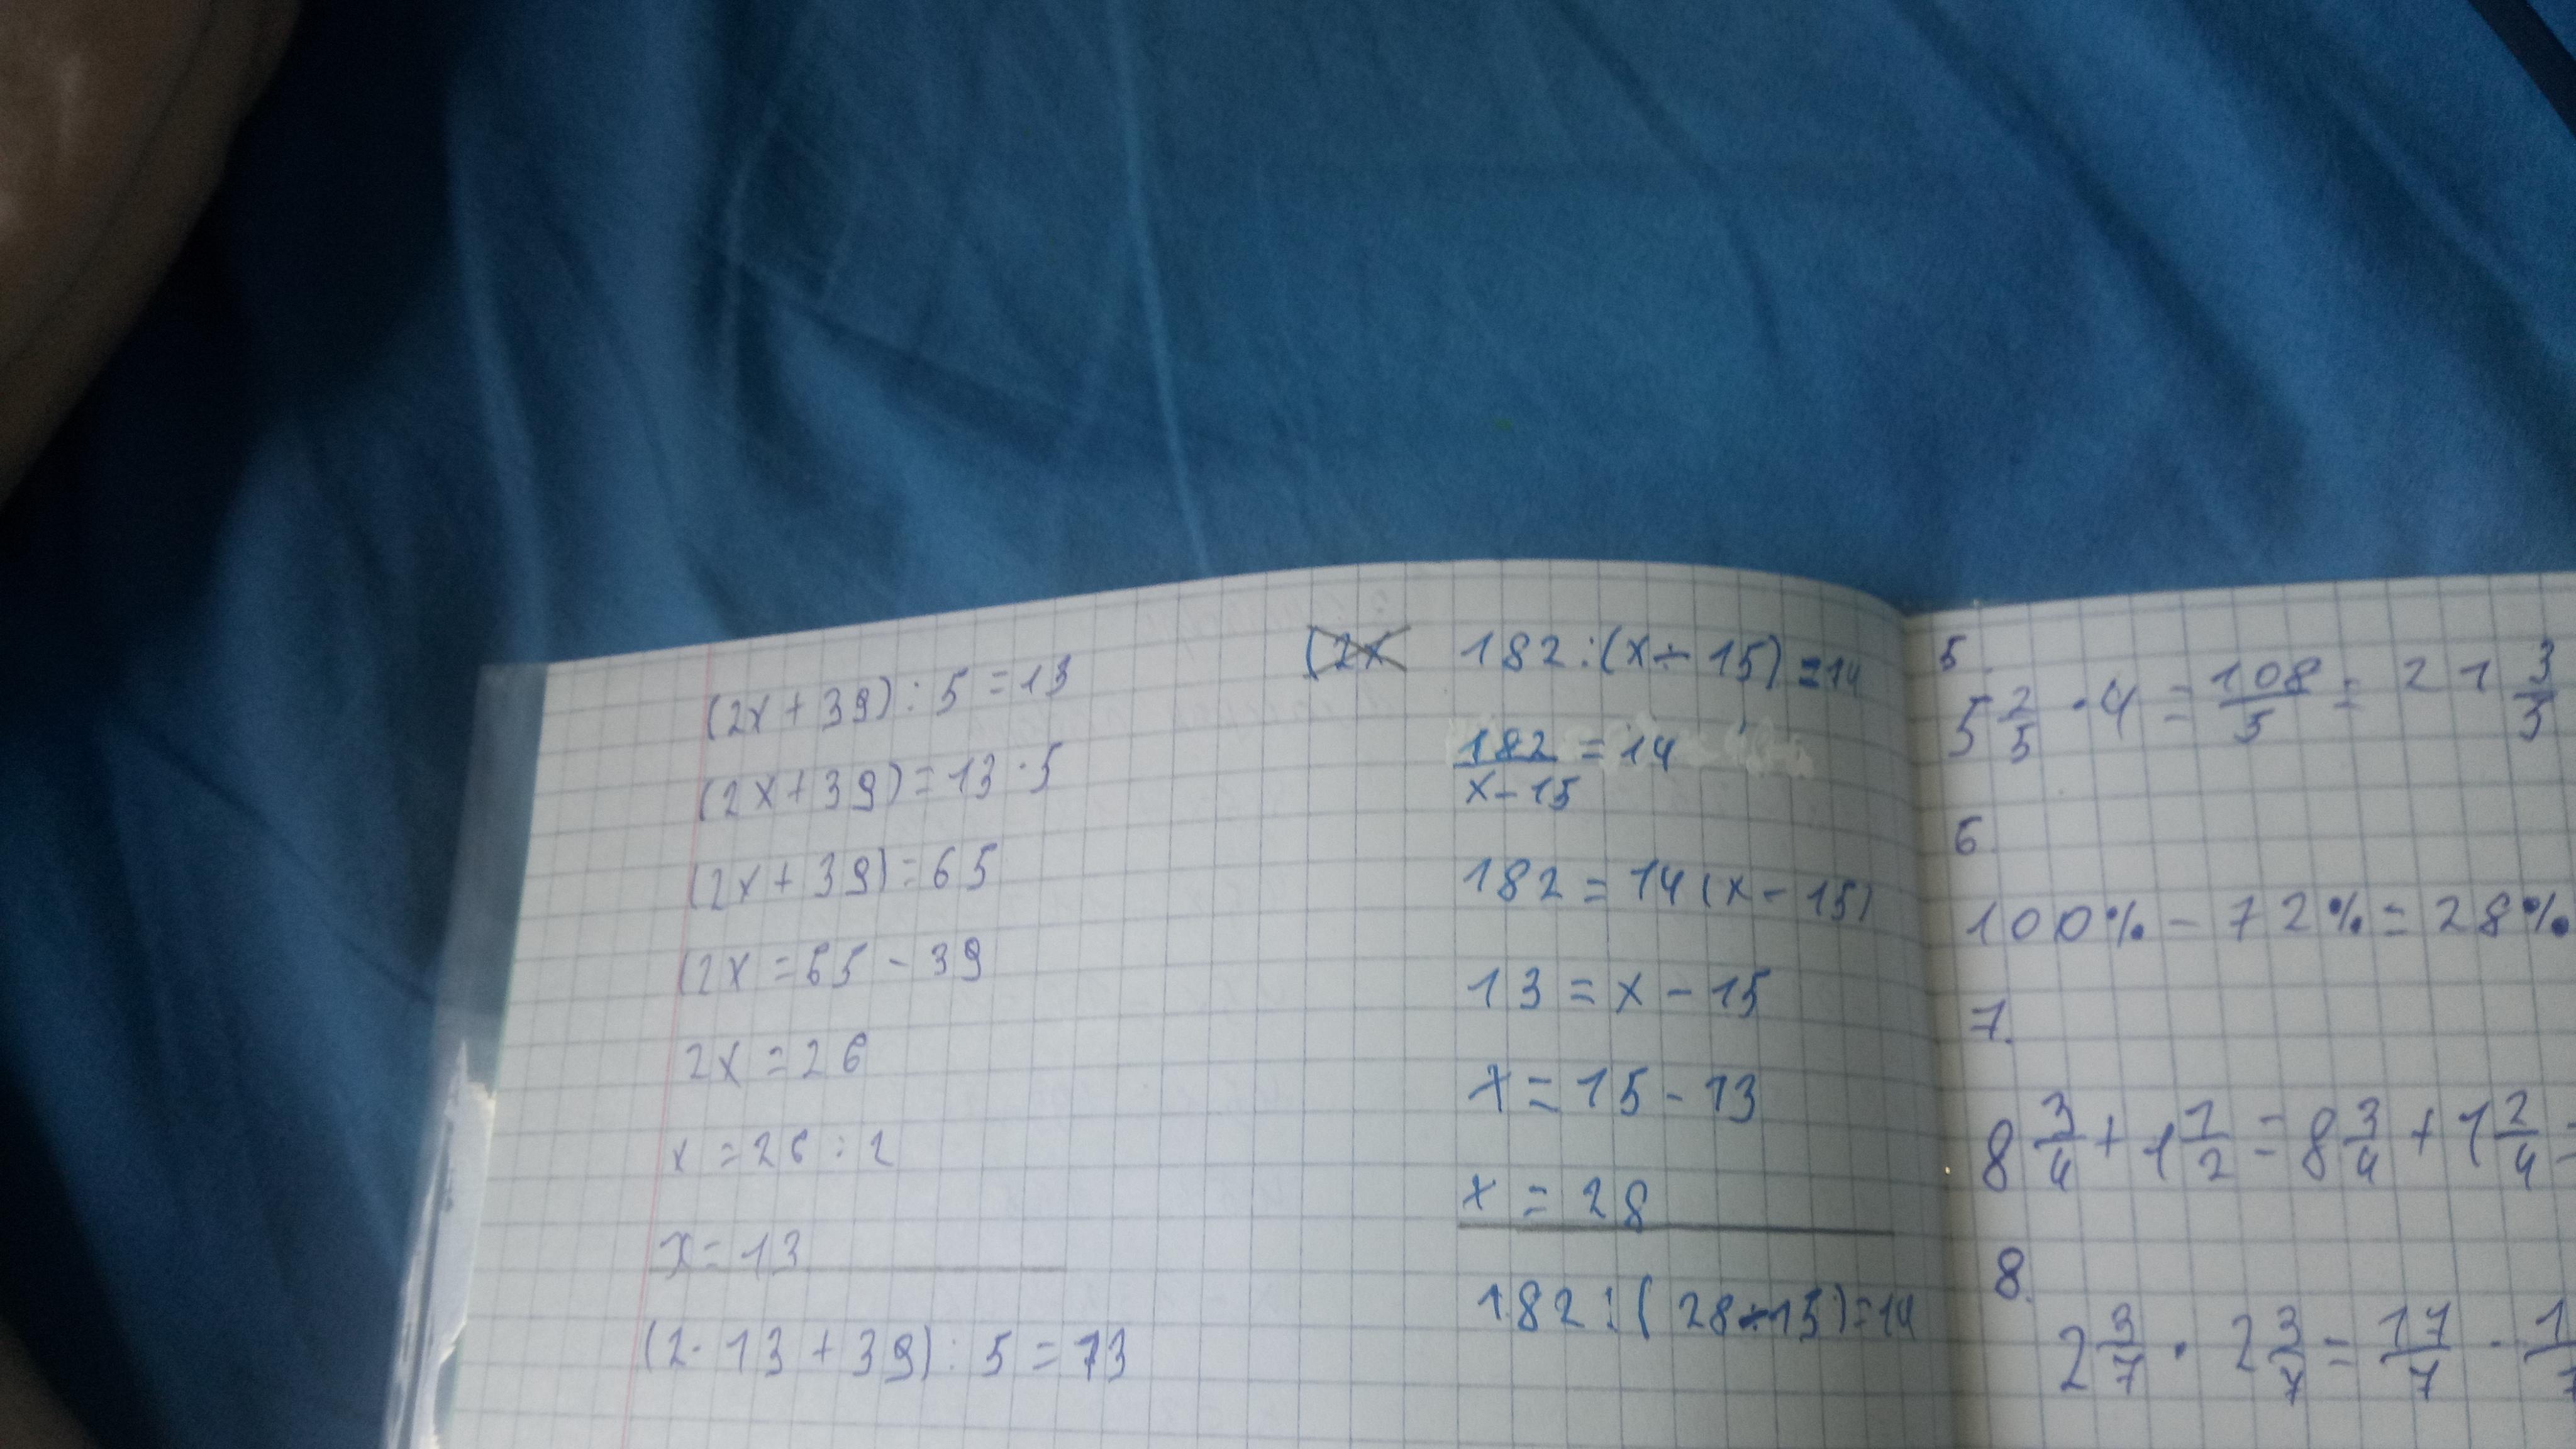 (2x + 39) : 5 = 13
(2x + 39) = 13 · 5
(2x + 39) = 65
(2x = 65 - 39
2x = 26
x = 26 : 2
x = 13
(2 · 13 + 39) : 5 = 13
(2x 182 : (x - 15) = 14
182/x-15 = 14
182 = 14 (x - 15)
13 = x - 15
x = 15 - 13
x = 28
182 : (28 - 15) = 14
5.
5 2/5 · 4 = 108/5 = 21 3/5
6.
100% - 72% = 28%
7.
8 3/4 + 1 1/2 = 8 3/4 + 1 2/4 =
8.
2 3/7 · 2 3/7 = 17/7 · 1/7